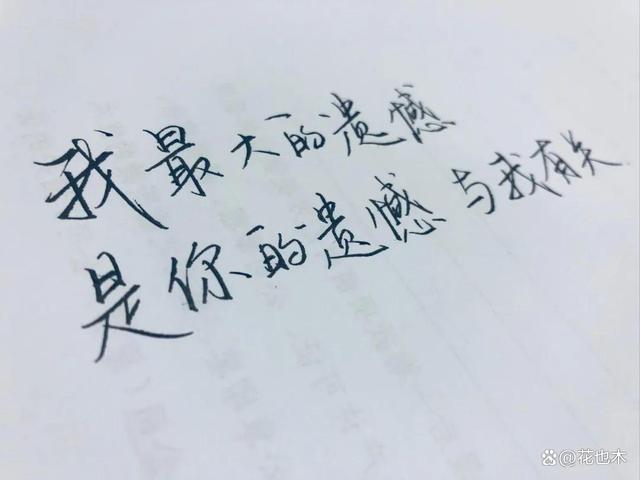 我最大的遗憾
是你的遗憾与我有关
@花也木